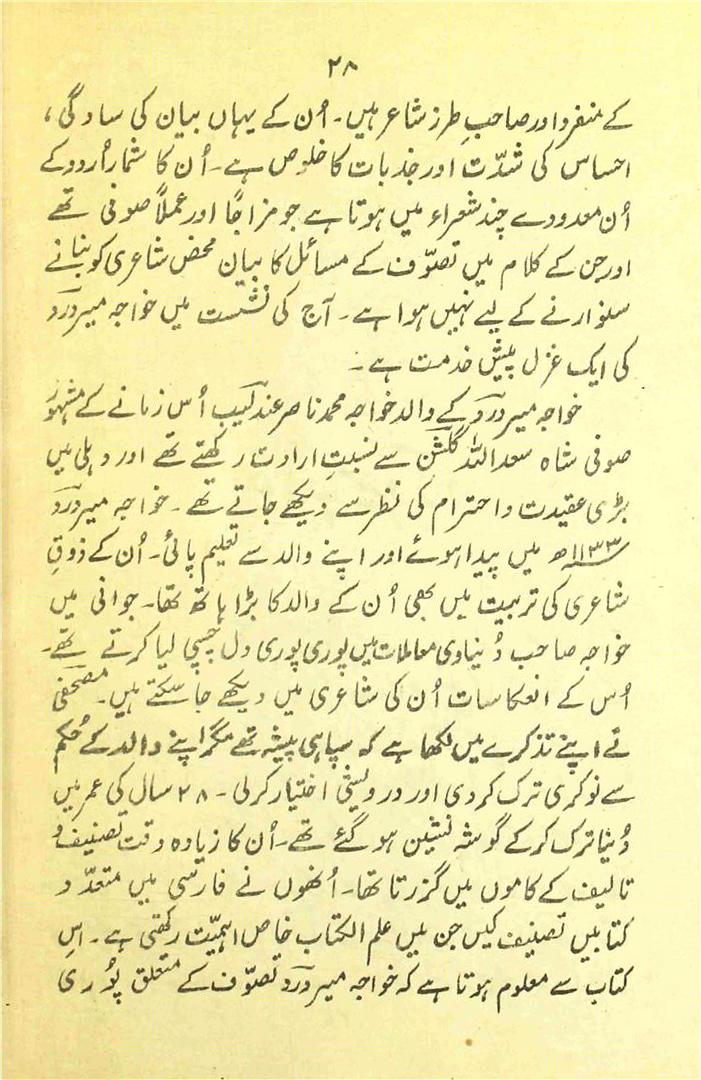 ۲۸
کے منفرد اور صاحبِ طرز شاعر ہیں۔ اُن کے یہاں بیان کی سادگی،
احساس کی شدّت اور جذبات کا خلوص ہے۔ اُن کا شمار اُردو کے
اُن معدودے چند شعراء میں ہوتا ہے جو مزاجاً اور عملاً صوفی تھے
اور جن کے کلام میں تصوّف کے مسائل کا بیان محض شاعری کو بنانے
سنوارنے کے لیے نہیں ہوا ہے۔ آج کی نشست میں خواجہ میر دردؔ
کی ایک غزل پیش خدمت ہے۔
خواجہ میر دردؔ کے والد خواجہ محمد ناصر عندلیبؔ اُس زمانے کے مشہور
صوفی شاہ سعد اللہ گلشنؔ سے نسبتِ ارادت رکھتے تھے اور دہلی میں
بڑی عقیدت و احترام کی نظر سے دیکھے جاتے تھے۔ خواجہ میر دردؔ
۱۱۳۳ھ میں پیدا ہوئے اور اپنے والد سے تعلیم پائی۔ اُن کے ذوقِ
شاعری کی تربیت میں بھی اُن کے والد کا بڑا ہاتھ تھا۔ جوانی میں
خواجہ صاحب دُنیاوی معاملات میں پوری پوری دل چسپی لیا کرتے تھے۔
اُس کے انعکاسات اُن کی شاعری میں دیکھے جا سکتے ہیں۔ مصحفیؔ
نے اپنے تذکرے میں لکھا ہے کہ سپاہی پیشہ تھے مگر اپنے والد کے حُکم
سے نوکری ترک کر دی اور درویشی اختیار کر لی۔ ۲۸ سال کی عمر میں
دُنیا ترک کر کے گوشہ نشین ہو گئے تھے۔ اُن کا زیادہ وقت تصنیف و
تالیف کے کاموں میں گزرتا تھا۔ اُنھوں نے فارسی میں متعدّد
کتابیں تصنیف کیں جن میں علم الکتاب خاص اہمیّت رکھتی ہے۔ اِس
کتاب سے معلوم ہوتا ہے کہ خواجہ میر دردؔ تصوّف کے متعلق پُوری